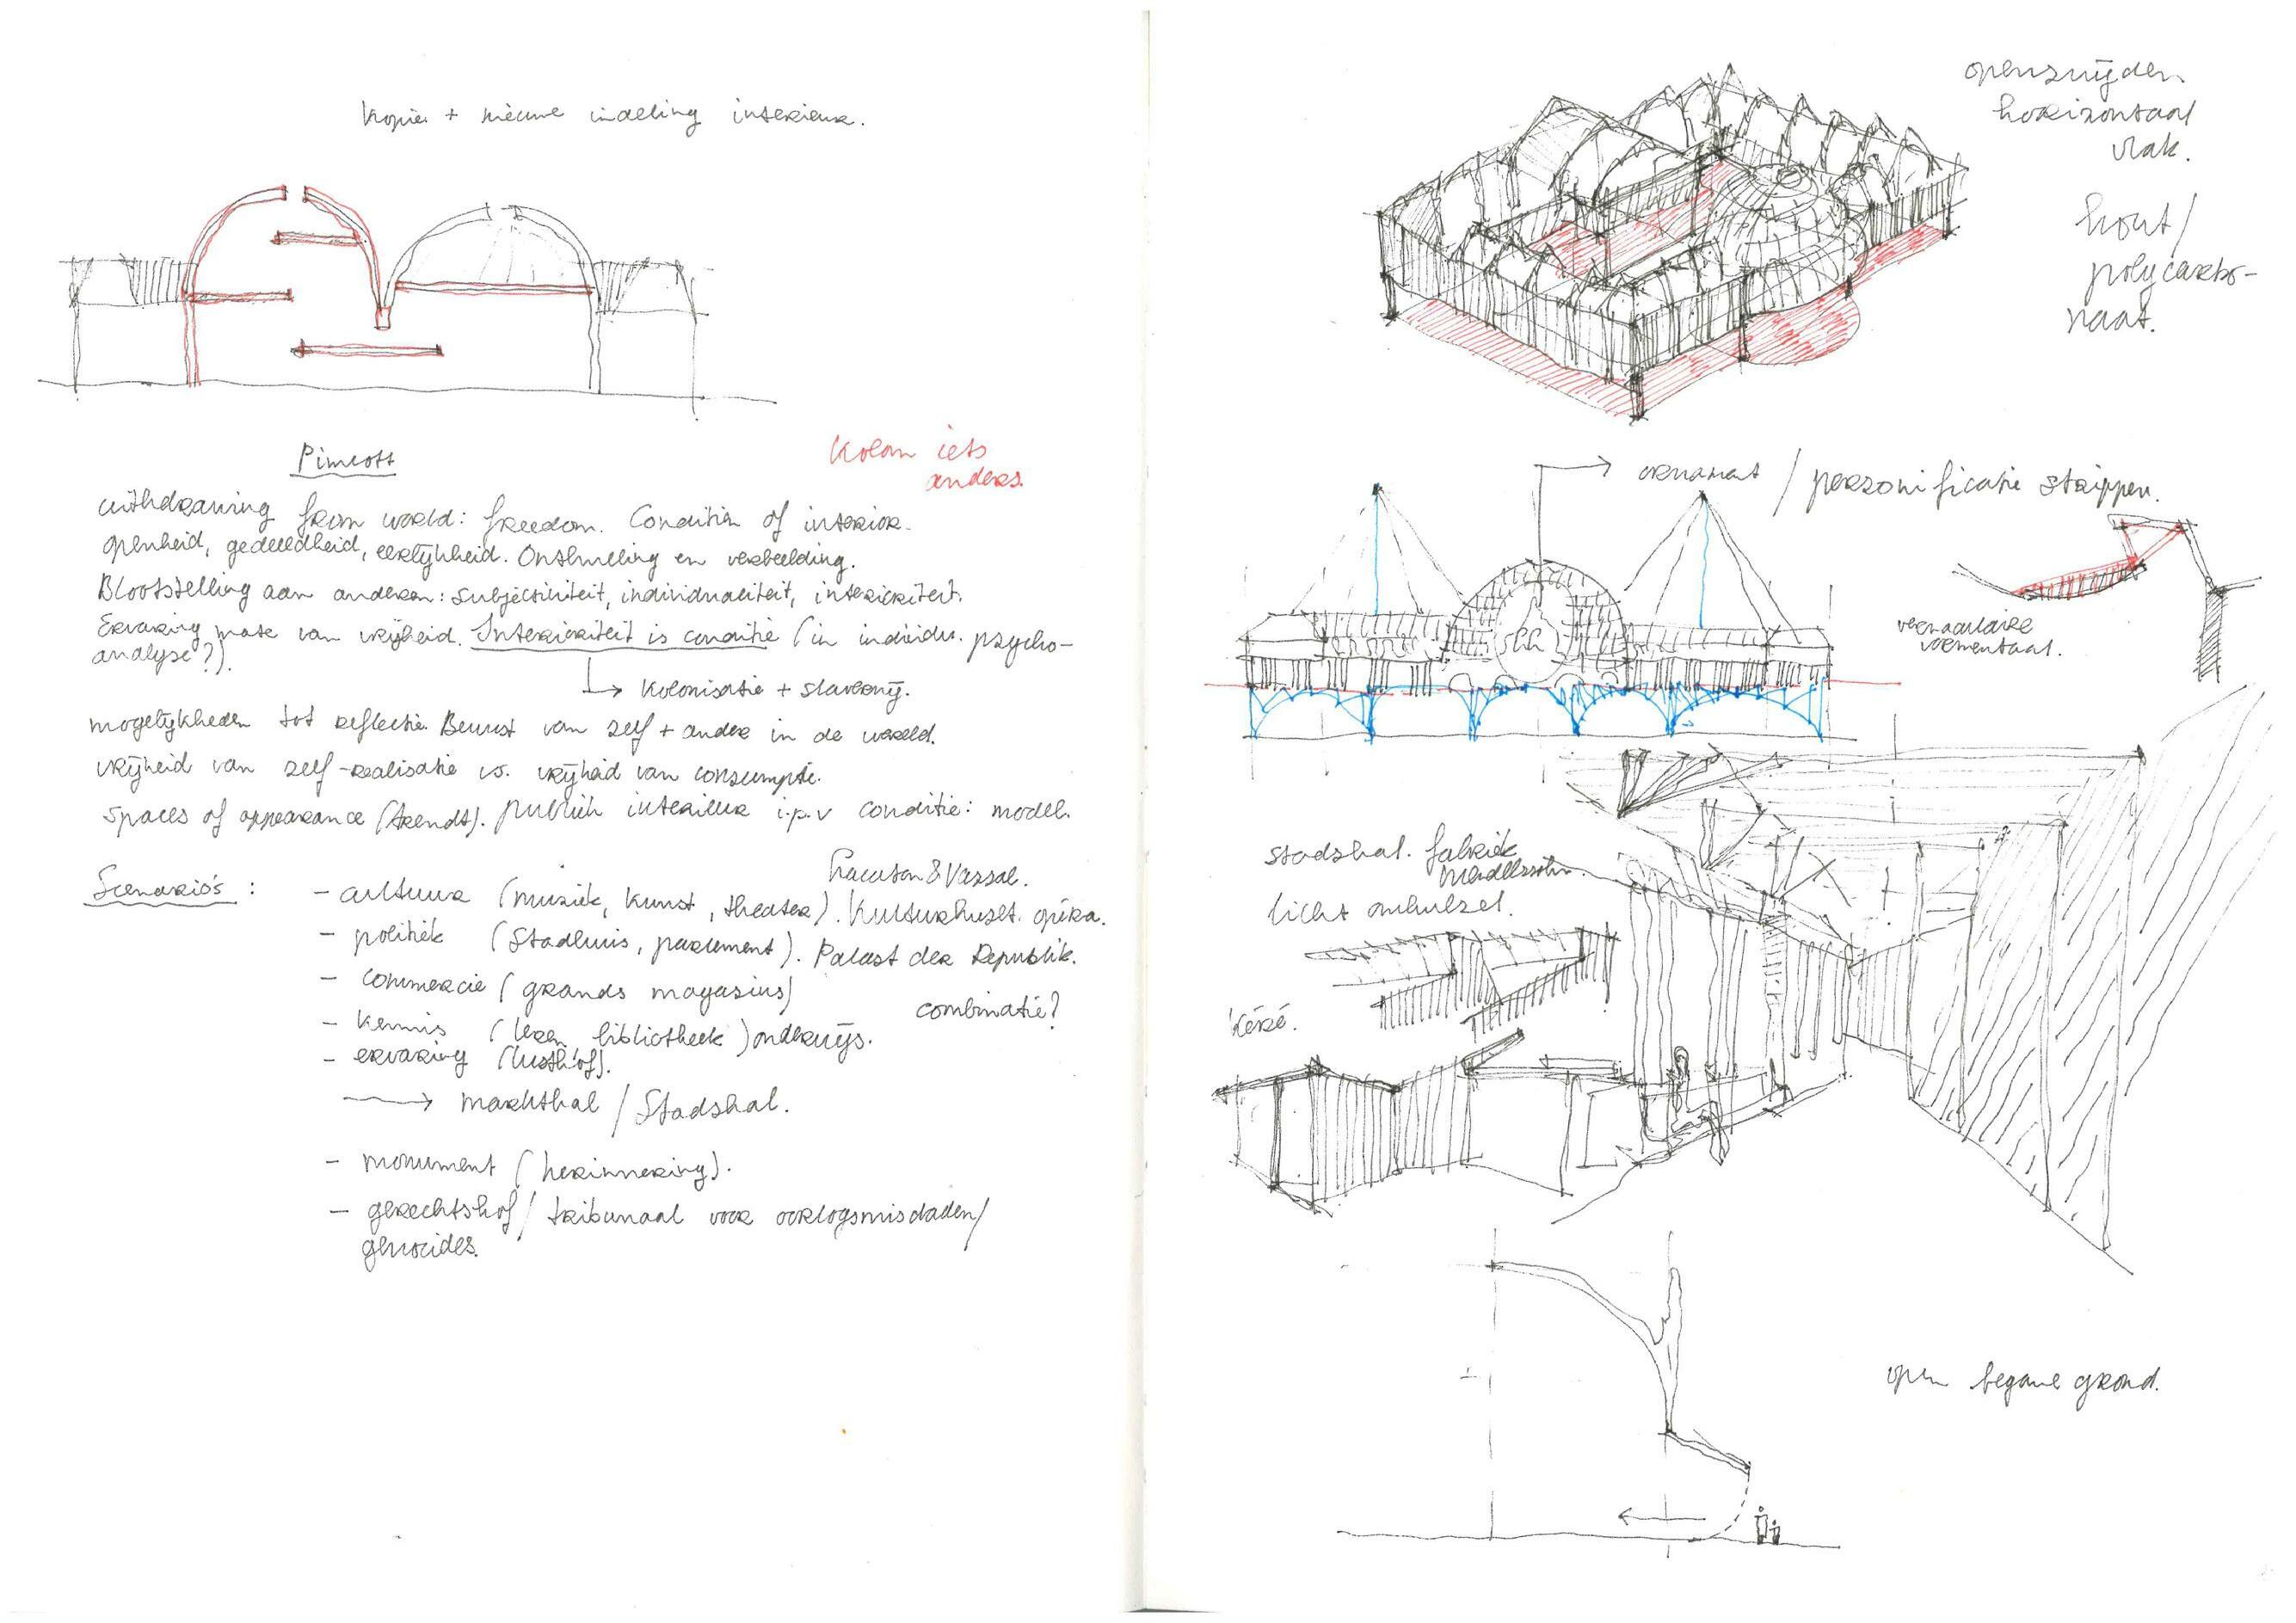 Kopie + nieuwe indeling interieur.
Kolom iets
anders.
Pimlott
withdrawing from world: freedom. Condition of interior.
openheid, gedeeldheid, eerlijkheid. Onthulling en verbeelding.
Blootstelling aan anderen: subjectiviteit, individualiteit, interioriteit.
Ervaring mate van vrijheid. Interioriteit is conditie (in individu. psycho-
analyse?).
↳ Kolonisatie + slavernij.
mogelijkheden tot reflectie. Bewust van zelf + ander in de wereld.
vrijheid van zelf-realisatie vs. vrijheid van consumptie.
Spaces of appearance (Arendt). publiek interieur i.p.v conditie: model.
Scenario's :
Lacaton & Vassal.
- cultuur (muziek, kunst, theater). Kulturhuset. opéra.
- politiek (Stadhuis, parlement). Palast der Republik.
- commercie (grands magasins)
combinatie?
- kennis (leren bibliotheek) onderwijs.
- ervaring (lusthof).
→ markthal / Stadshal.
- monument (herinnering).
- gerechtshof / tribunaal voor oorlogsmisdaden/
genocides.
opensnijden
horizontaal
vlak.
hout/
polycarbo-
naat.
→ ornament / personificatie strippen.
vernaculaire
vormentaal.
stadshal. fabriek
Mendelssohn.
licht omhulsel.
Kéré.
open begane grond.